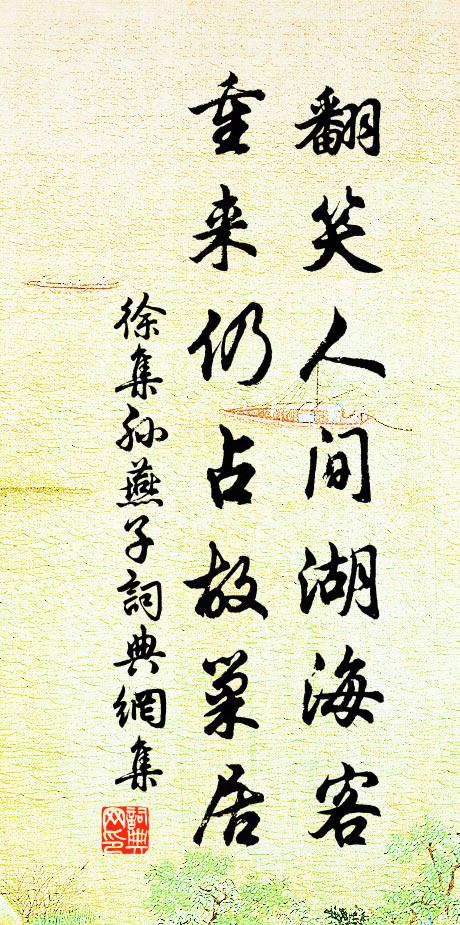 翻笑人间湖海客
重来仍占故巢居
徐集孙燕子詞典網集
詞典
网印